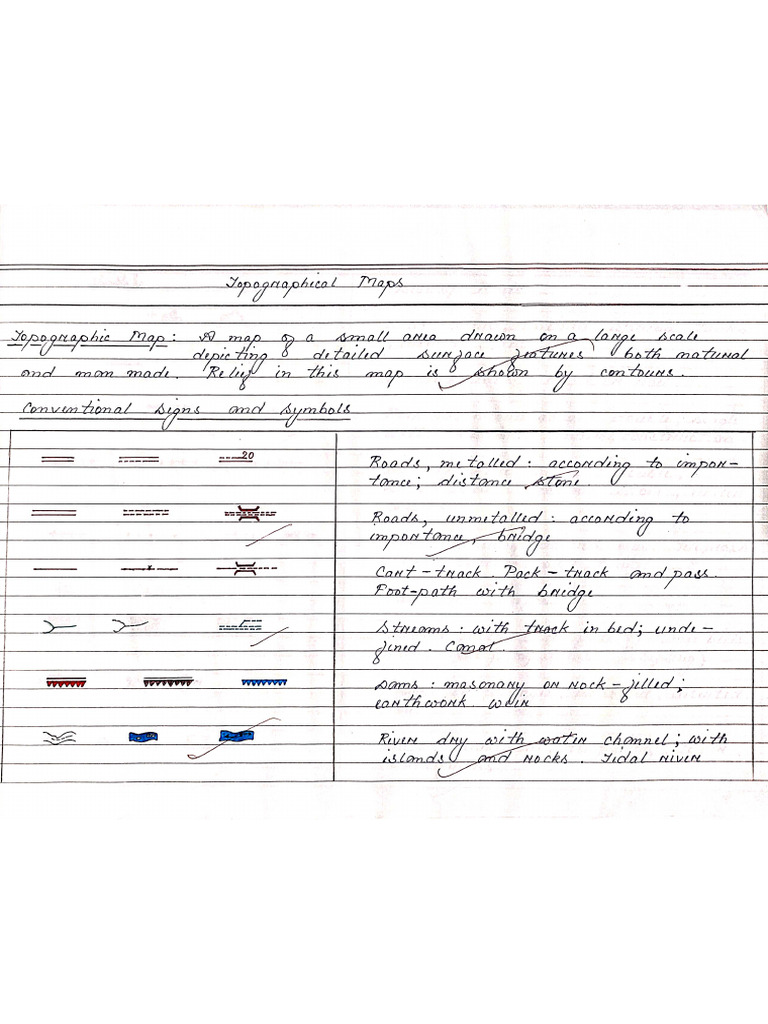 Topographical Maps
Topographic Map : A map of a small area drawn on a large scale
depicting detailed surface features both natural
and man made. Relief in this map is shown by contours.
Conventional Signs and Symbols
20
Roads, metalled : according to impor-
tance; distance stone.
Roads, unmetalled : according to
importance, bridge
Cart-track. Pack-track and pass.
Foot-path with bridge
Streams : with track in bed; unde-
fined. Canal.
Dams : masonary or rock-filled;
earthwork weir
River dry with water channel; with
islands and rocks. Tidal river